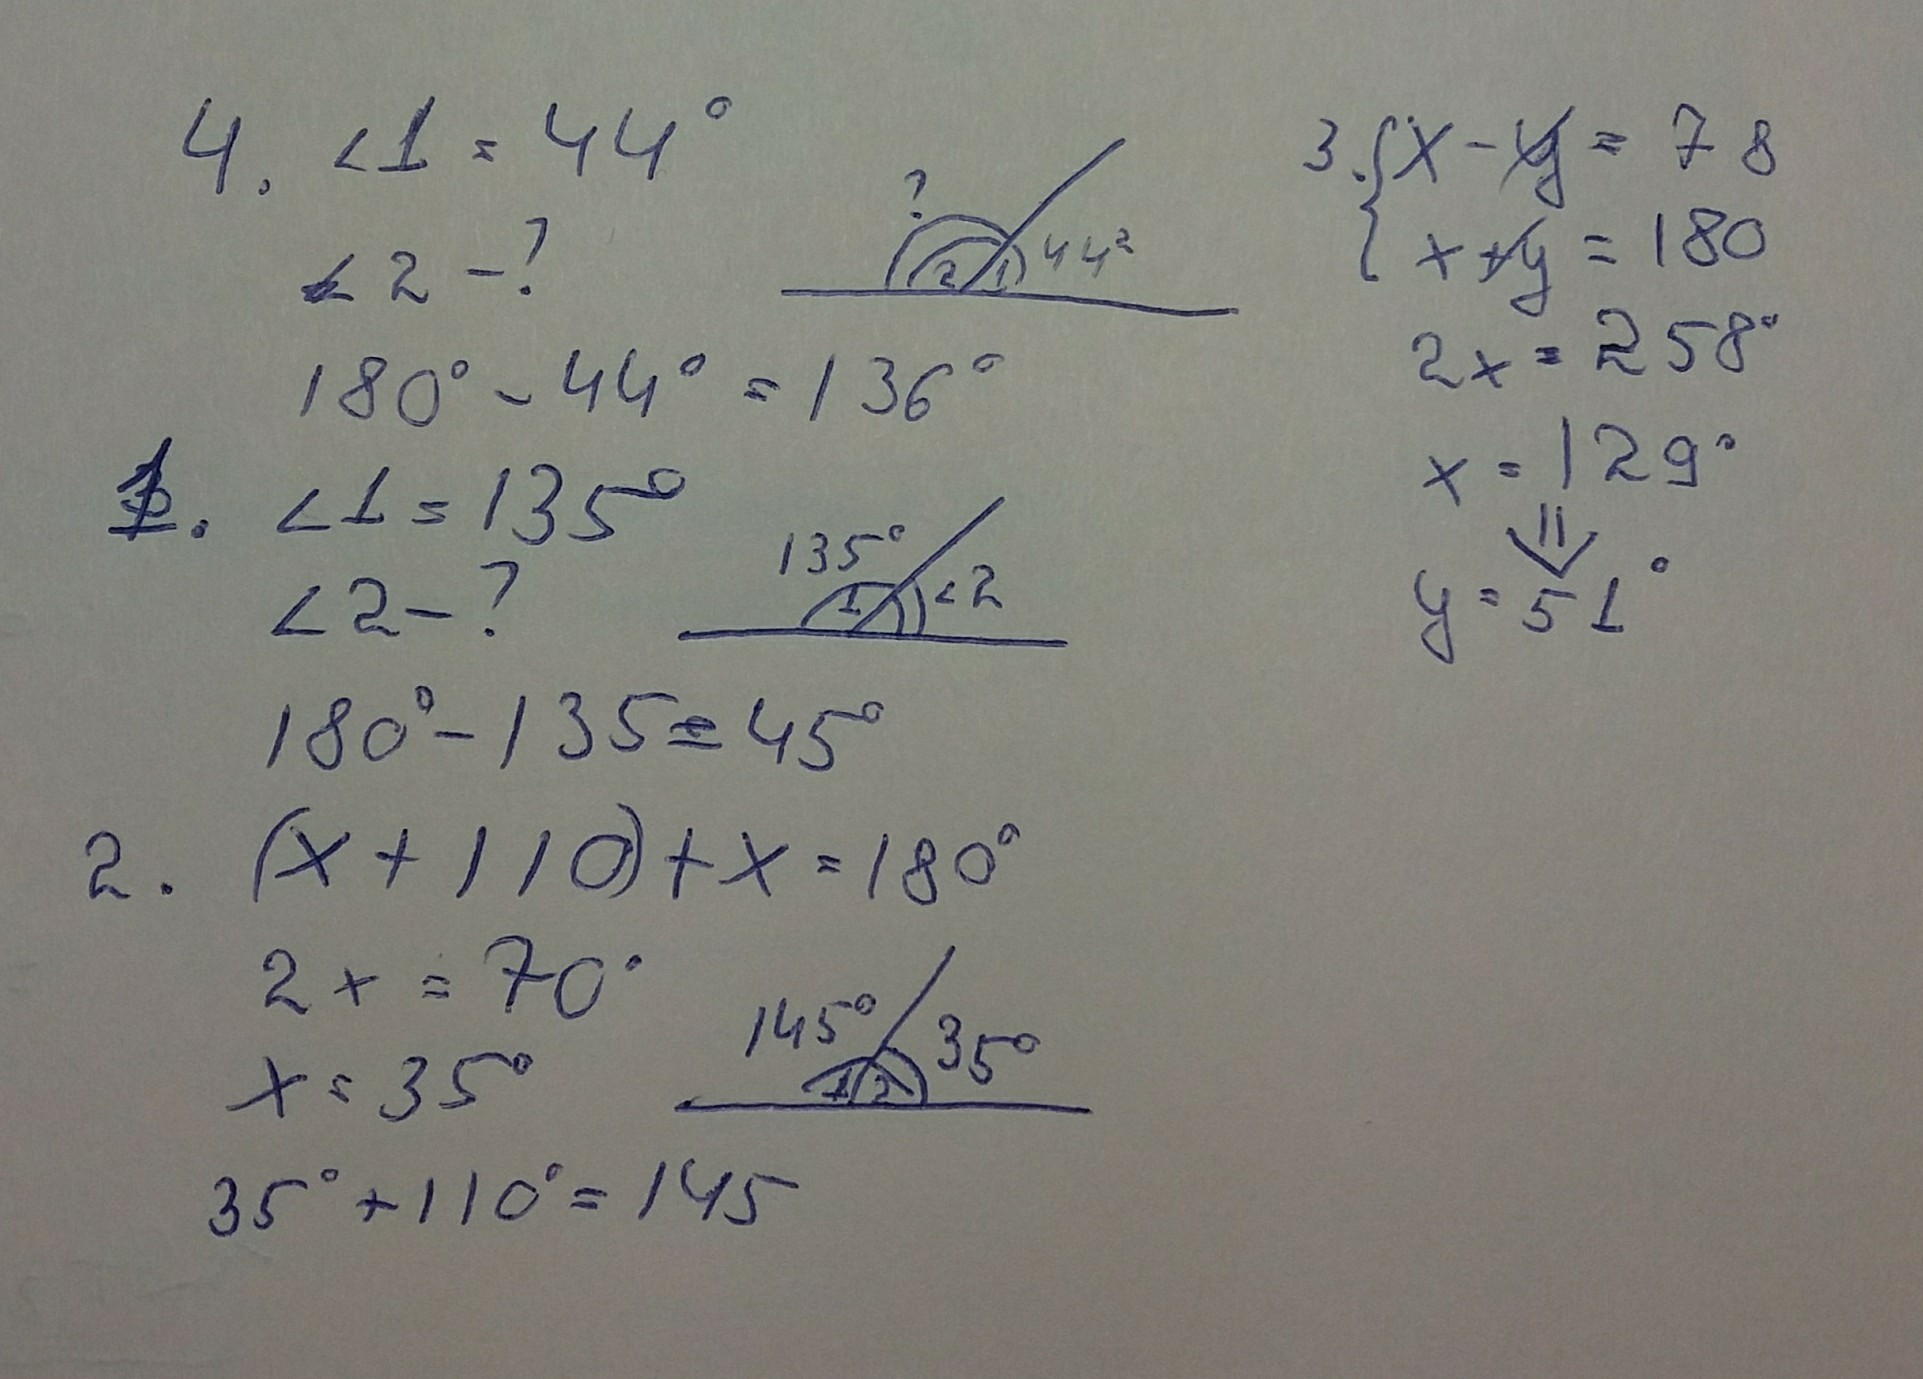 4. <1 = 44°
<2 - ?
? 2 1 44°
180° - 44° = 136°
1. <1 = 135°
<2 - ?
135° 1 <2
180° - 135 = 45°
2. (x + 110) + x = 180°
2x = 70°
x = 35°
145° 1 2 35°
35° + 110° = 145
3. { x - y = 78
x + y = 180
2x = 258°
x = 129°
⇓
y = 51°